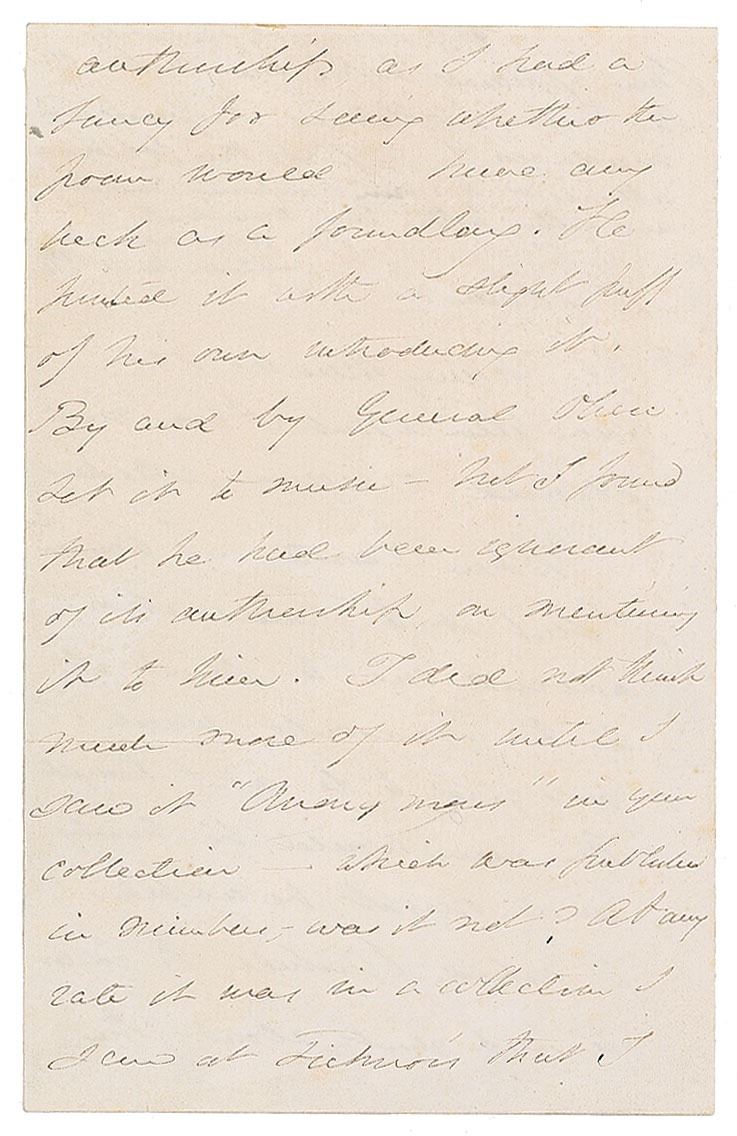 authorship, as I had a
fancy for seeing whether the
poem would have any
luck as a foundling. He
printed it with a slight puff
of his own introducing it.
By and by General Oliver
set it to music – but I found
that he had been ignorant
of its authorship, on mentioning
it to him. I did not think
much more of it until I
saw it "Anonymous" in your
collection – which was published
in numbers, was it not? At any
rate it was in a collection I
saw at Ticknor's that I